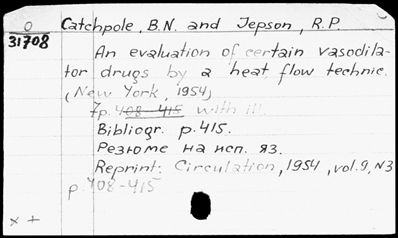 O Catchpole, B.N. and Jepson, R.P.
31708
An evaluation of certain vasodila-
tor drugs by a heat flow technic.
(New York, 1954)
7p. 408-415 with ill.
Bibliogr. p.415.
Резюме на исп. яз.
Reprint: Circulation, 1954, vol.9, N3
p.408-415
x +